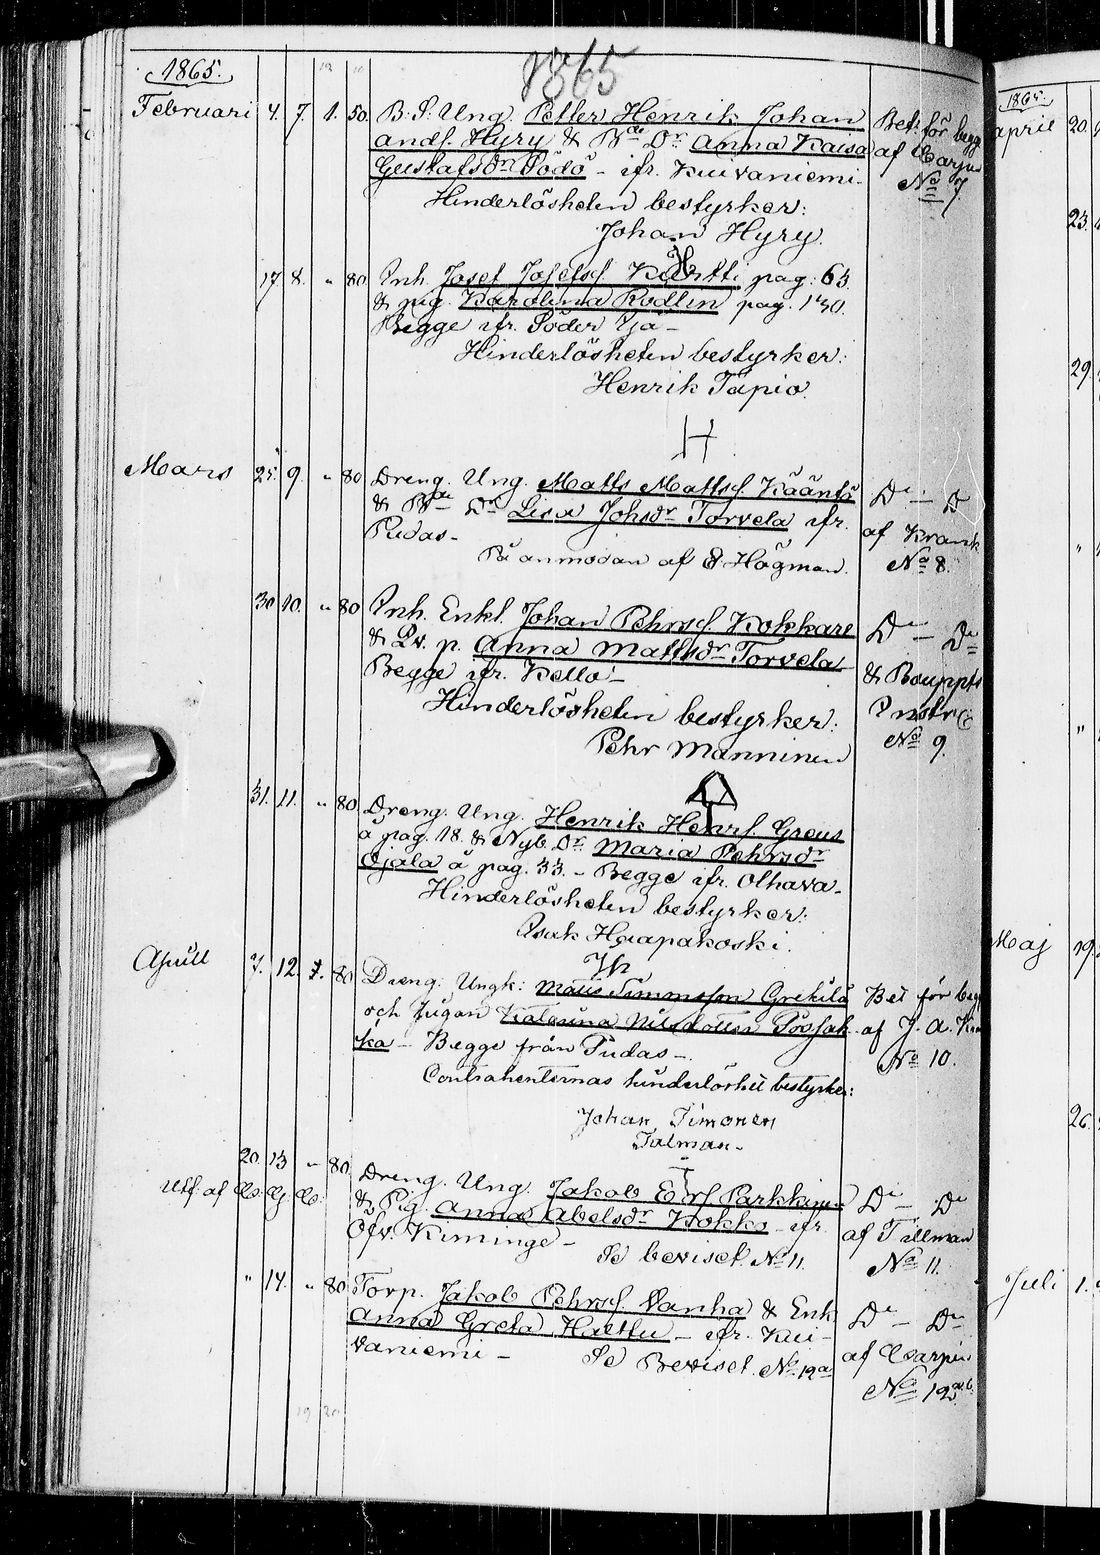 1865
1865.
Februari 4. 7. 1. 50. B. S. Ung. Petter Henrik Johan
andf. Hyry & Bde Dr Anna Kaisa
Gustafsdr Södö - ifr. Kuivaniemi.
Bet. för begg
af Carpn
No 7.
Hinderlösheten bestyrker:
Johan Hyry.
17. 8. " 80. Inh. Josef Josefsf. Kurtti pag. 63.
& pig. Karolina Rodlin pag. 130.
Begge ifr. Söder Ijå -
Hinderlösheten bestyrker:
Henrik Tapio.
H
Mars 25. 9. " 80 Dreng. Ung. Matts Mattsf. Kääntä
& Bde Dr Lisa Johsdr Torvela ifr.
Pudas -
På anmodan af E Högman.
De — D
af Krank
No 8.
30. 10. " 80 Inh. Enkl. Johan Pehrsf. Kokkare
& Qv. p. Anna Mattsdr Torvela
Begge ifr. Kello -
Hinderlösheten bestyrker:
Pehr Manninen
De — De
& Bouppts
Instr
No 9.
31. 11. " 80. Dreng. Ung. Henrik Henrsf. Greus
å pag. 18. & Nyb. Dr. Maria Pehrsdr
Ojala å pag. 33. - Begge ifr. Olhava -
Hinderlösheten bestyrker:
Isak Haapakoski.
Aprill 7. 12. 80. Dreng: Ungk: Matts Simmsson Grekilä
och Pigan Katarina Nilsdotter
ka - Begge från Pudas -
Contrahenternas hinderlöshet bestyrker:
Johan Timonen
Tolman -
Bet för beg
af J. A.
No 10.
20. 13 " 80. Dreng. Ung. Jakob Parkkinen
& Pig. Anna Abelsdr Kokko - ifr.
Öfv. Kiminge - Se beviset. No 11.
Utf. af
De — De
af Tillman
No 11.
" 14. " 80. Torp. Jakob Pehrsf. Vanha & Enk.
Anna Greta Haettu - ifr. Kui-
vaniemi - Se Beviset. No 12 a
De — De
af Carpn
No 12 a.b.
19 20
1865.
April 20.
23.
29.
"
"
Maj 19.
26.
Juli 1.